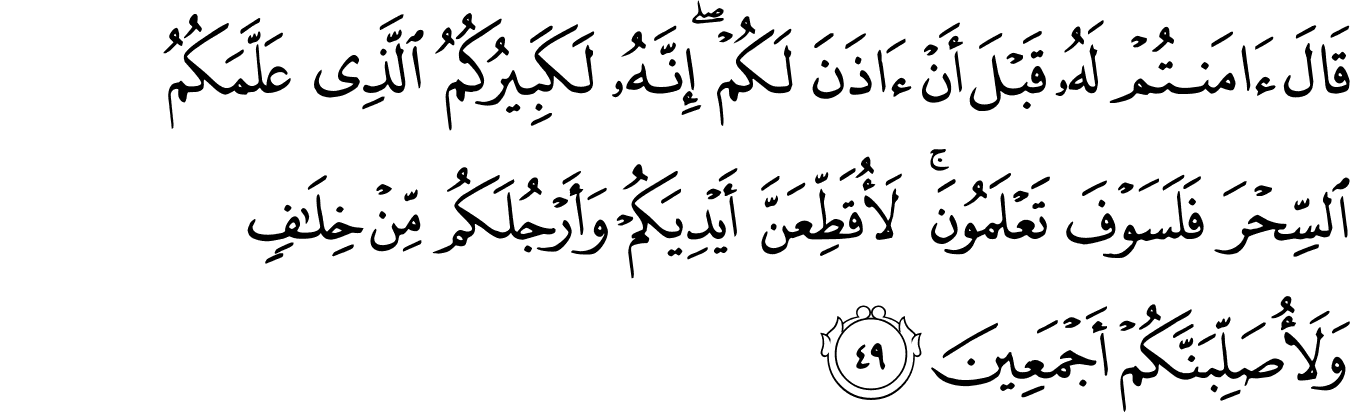 قَالَ ءَامَنتُمۡ لَهُۥ قَبۡلَ أَنۡ ءَاذَنَ لَكُمۡۖ إِنَّهُۥ لَكَبِيرُكُمُ ٱلَّذِى عَلَّمَكُمُ
ٱلسِّحۡرَ فَلَسَوۡفَ تَعۡلَمُونَۚ لَأُقَطِّعَنَّ أَيۡدِيَكُمۡ وَأَرۡجُلَكُم مِّنۡ خِلَٰفٍ
وَلَأُصَلِّبَنَّكُمۡ أَجۡمَعِينَ ٤٩